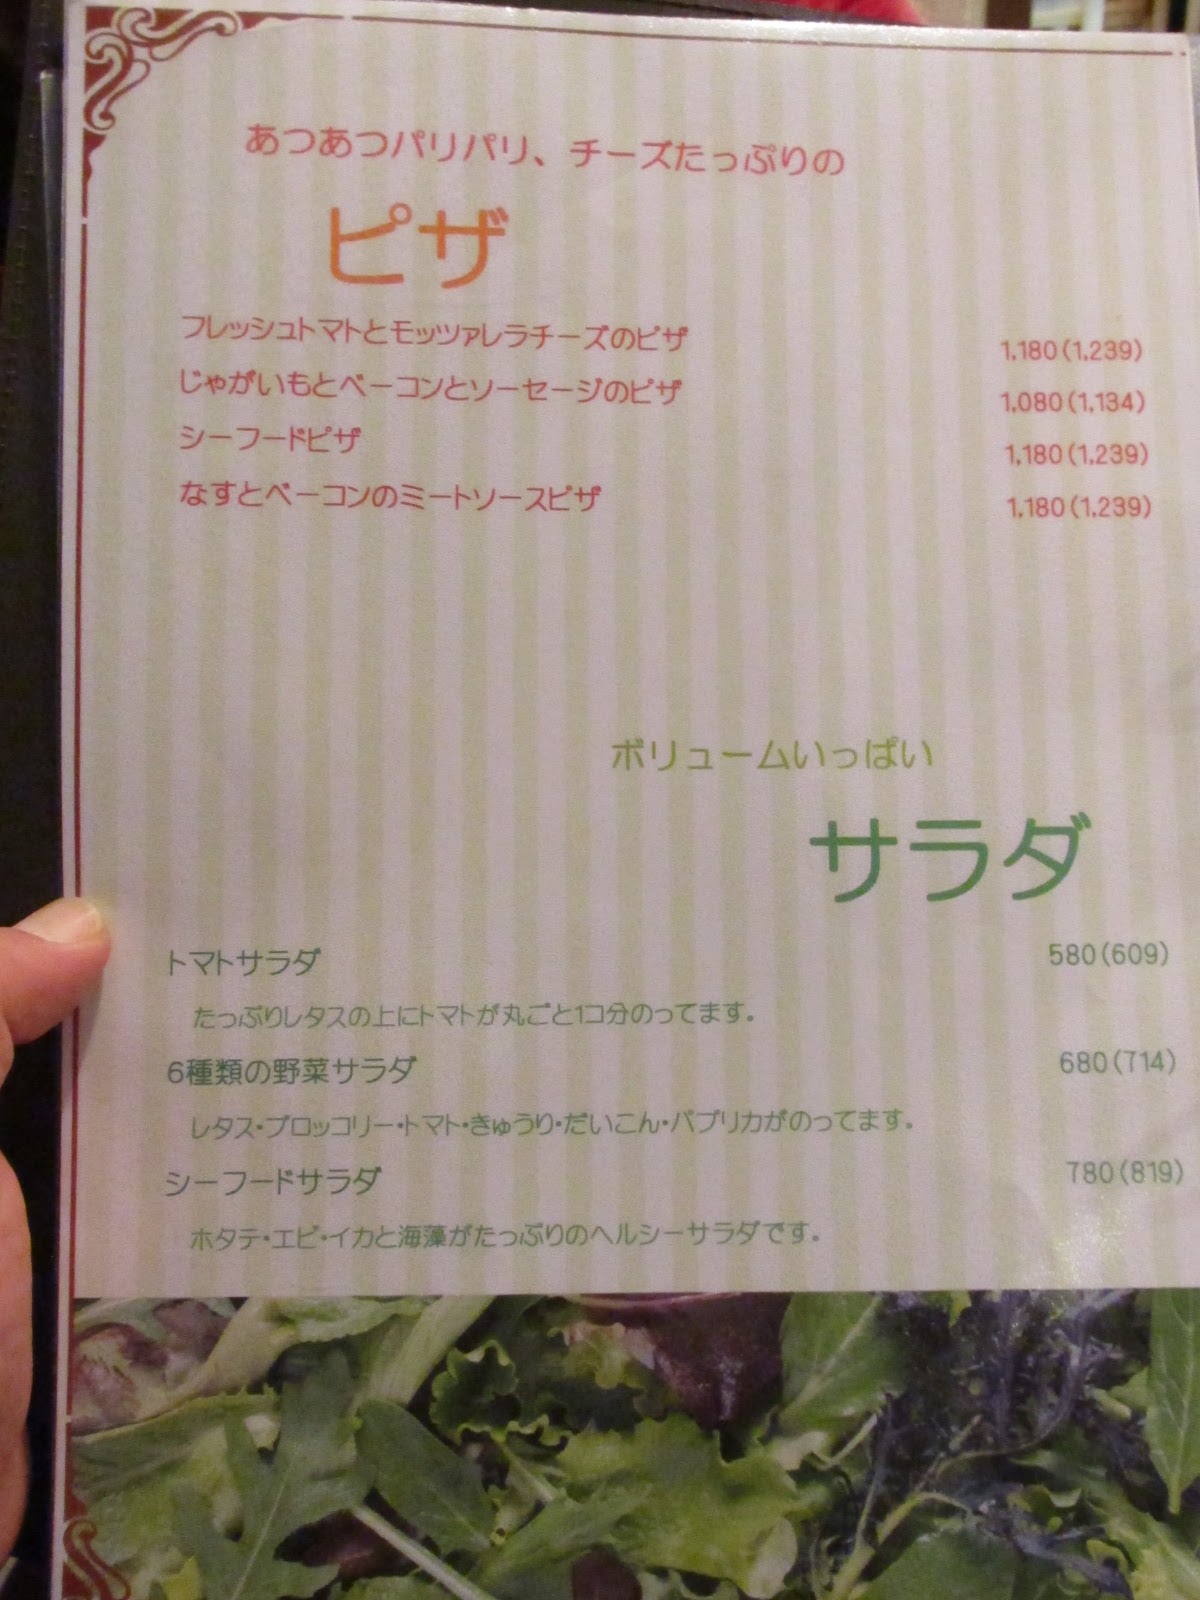 あつあつパリパリ、チーズたっぷりの
ピザ
フレッシュトマトとモッツァレラチーズのピザ 1,180(1,239)
じゃがいもとベーコンとソーセージのピザ 1,080(1,134)
シーフードピザ 1,180(1,239)
なすとベーコンのミートソースピザ 1,180(1,239)
ボリュームいっぱい
サラダ
トマトサラダ 580(609)
たっぷりレタスの上にトマトが丸ごと1コ分のってます。
6種類の野菜サラダ 680(714)
レタス・ブロッコリー・トマト・きゅうり・だいこん・パプリカがのってます。
シーフードサラダ 780(819)
ホタテ・エビ・イカと海藻がたっぷりのヘルシーサラダです。